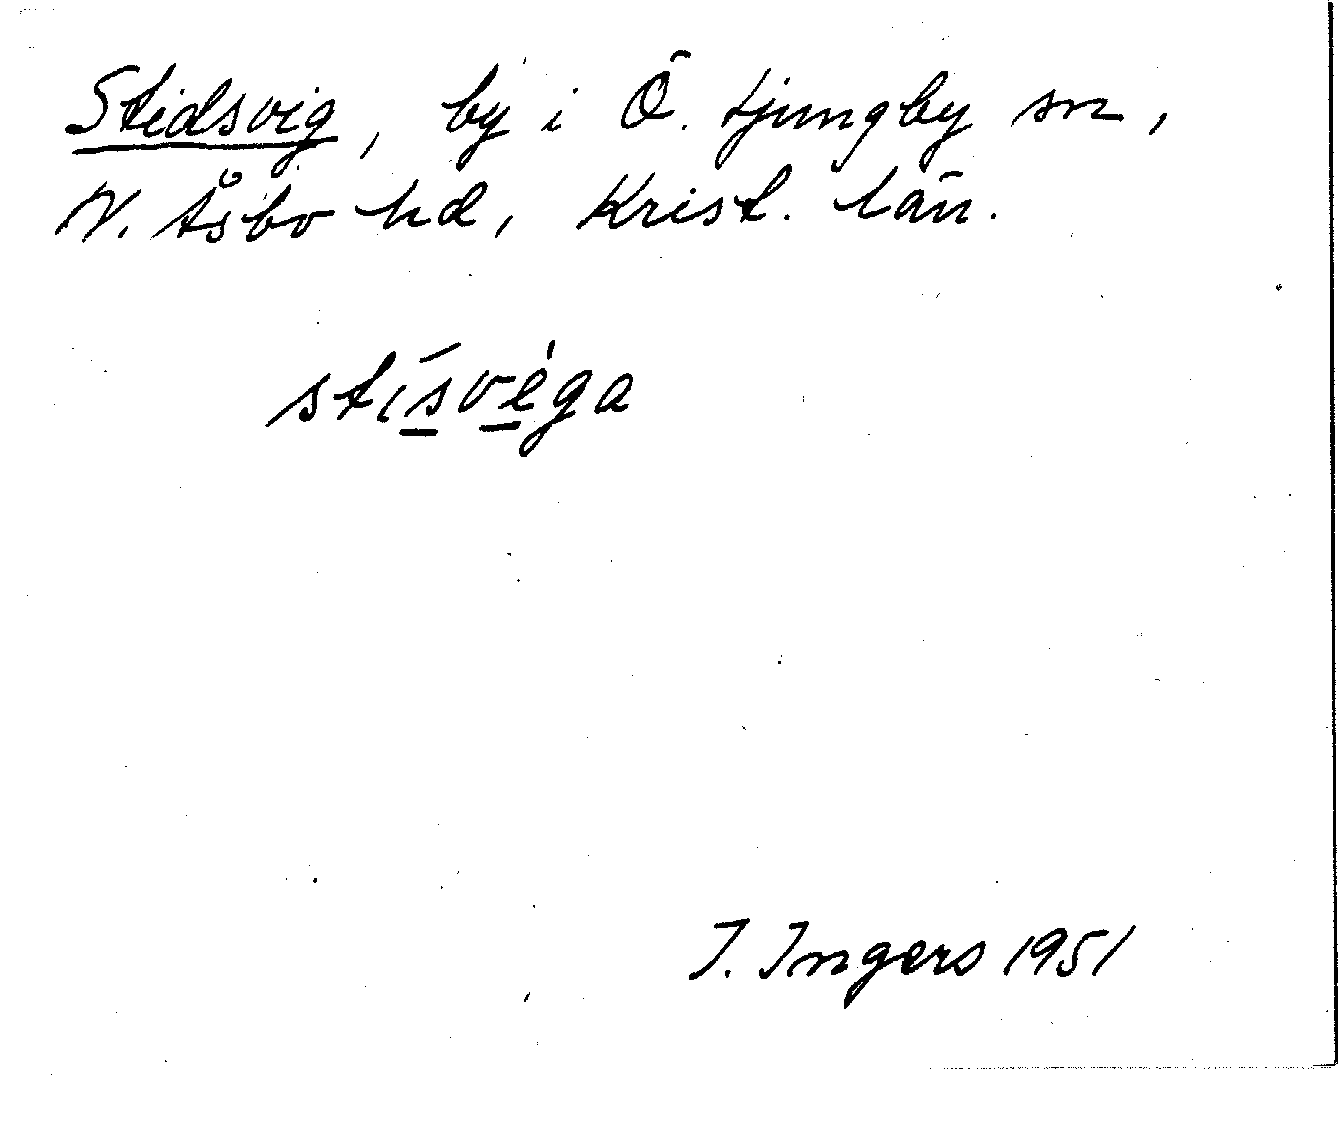 Stidsvig, by i Ö. Ljungby sn,
N. Åsbo hd, Krist. län.
stísvèga
I. Ingers 1951